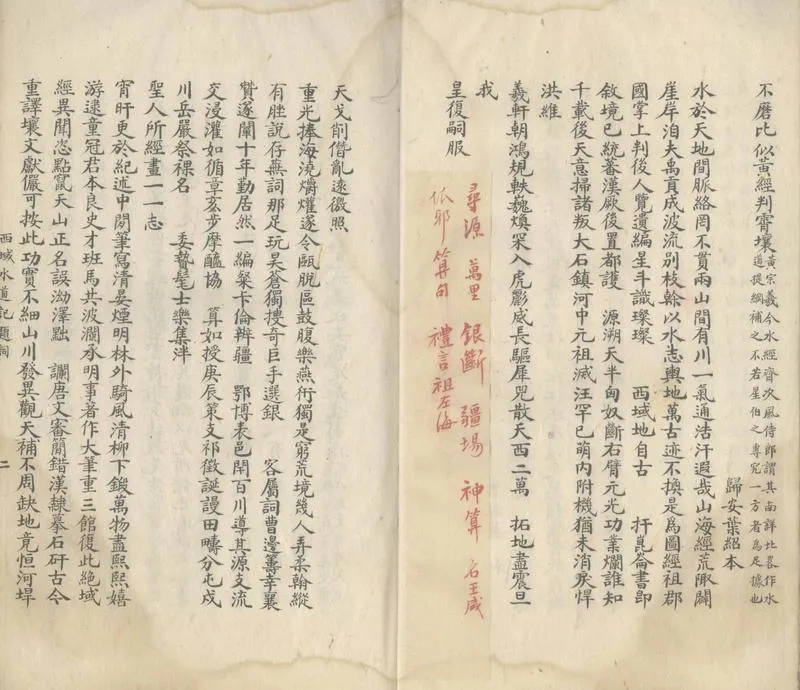 不磨比似黃經判霄壤黃宗羲今水經齊次風侍郎謂其南詳北畧作水道提綱補之不若星伯之專究一方者為足據也
歸安葉紹本
水於天地間脈絡罔不貫兩山間有川一氣通浩汗遐哉山海經荒陬闢
崖岸洎夫禹貢成波流別枝榦以水志輿地萬古迹不換是為圖經祖郡
國掌上判後人覽遺編星斗識璨璨 西域地自古 扞崑崙書即
敘境已統蕃漢厥後置都護 源溯天半匈奴斷右臂元光功業爛誰知
千載後天意掃諸叛大石鎮河中元祖滅汪罕已萌內附機猶未消戾悍
洪維
我
羲軒朝鴻規軼巍煥罙入虎彪威長驅犀兕散天西二萬 拓地盡震旦
皇復嗣服
尋源 萬里 銀斷 疆場 神算 名王威
算句 禮言祖左海
天戈削僭亂遠徼照
重光捧海澆爝燿遂令甌脫區鼓腹樂燕衎獨是窮荒境幾人弄柔翰縱
有胜說存蕪詞那足玩昊蒼獨搜奇巨手選銀 客屬詞曹邊籌幸襄
贊遂闡十年勤居然一編粲卡倫辨疆 鄂博表邑閈百川導其源支流
交浸灌如循章亥步摩醯協 算如授庚辰策支祁徵誕謾田疇分屯戍
川岳嚴祭祼名 委贄髦士樂集泮
聖人所經畫一一志
宵旰更於紀述中閒筆寫清晏煙明林外騎風清柳下鍛萬物盡熙熙嬉
游逮童冠君本良史才班馬共波瀾承明事著作大筆重三館復此絕域
經異聞恣點竄天山正名誤泑澤黜 讕唐文審簡錯漢隸摹石矸古今
重譯壤文獻儼可按此功實不細山川發異觀天補不周缺地竟恒河垾
西域水道記題詞 二